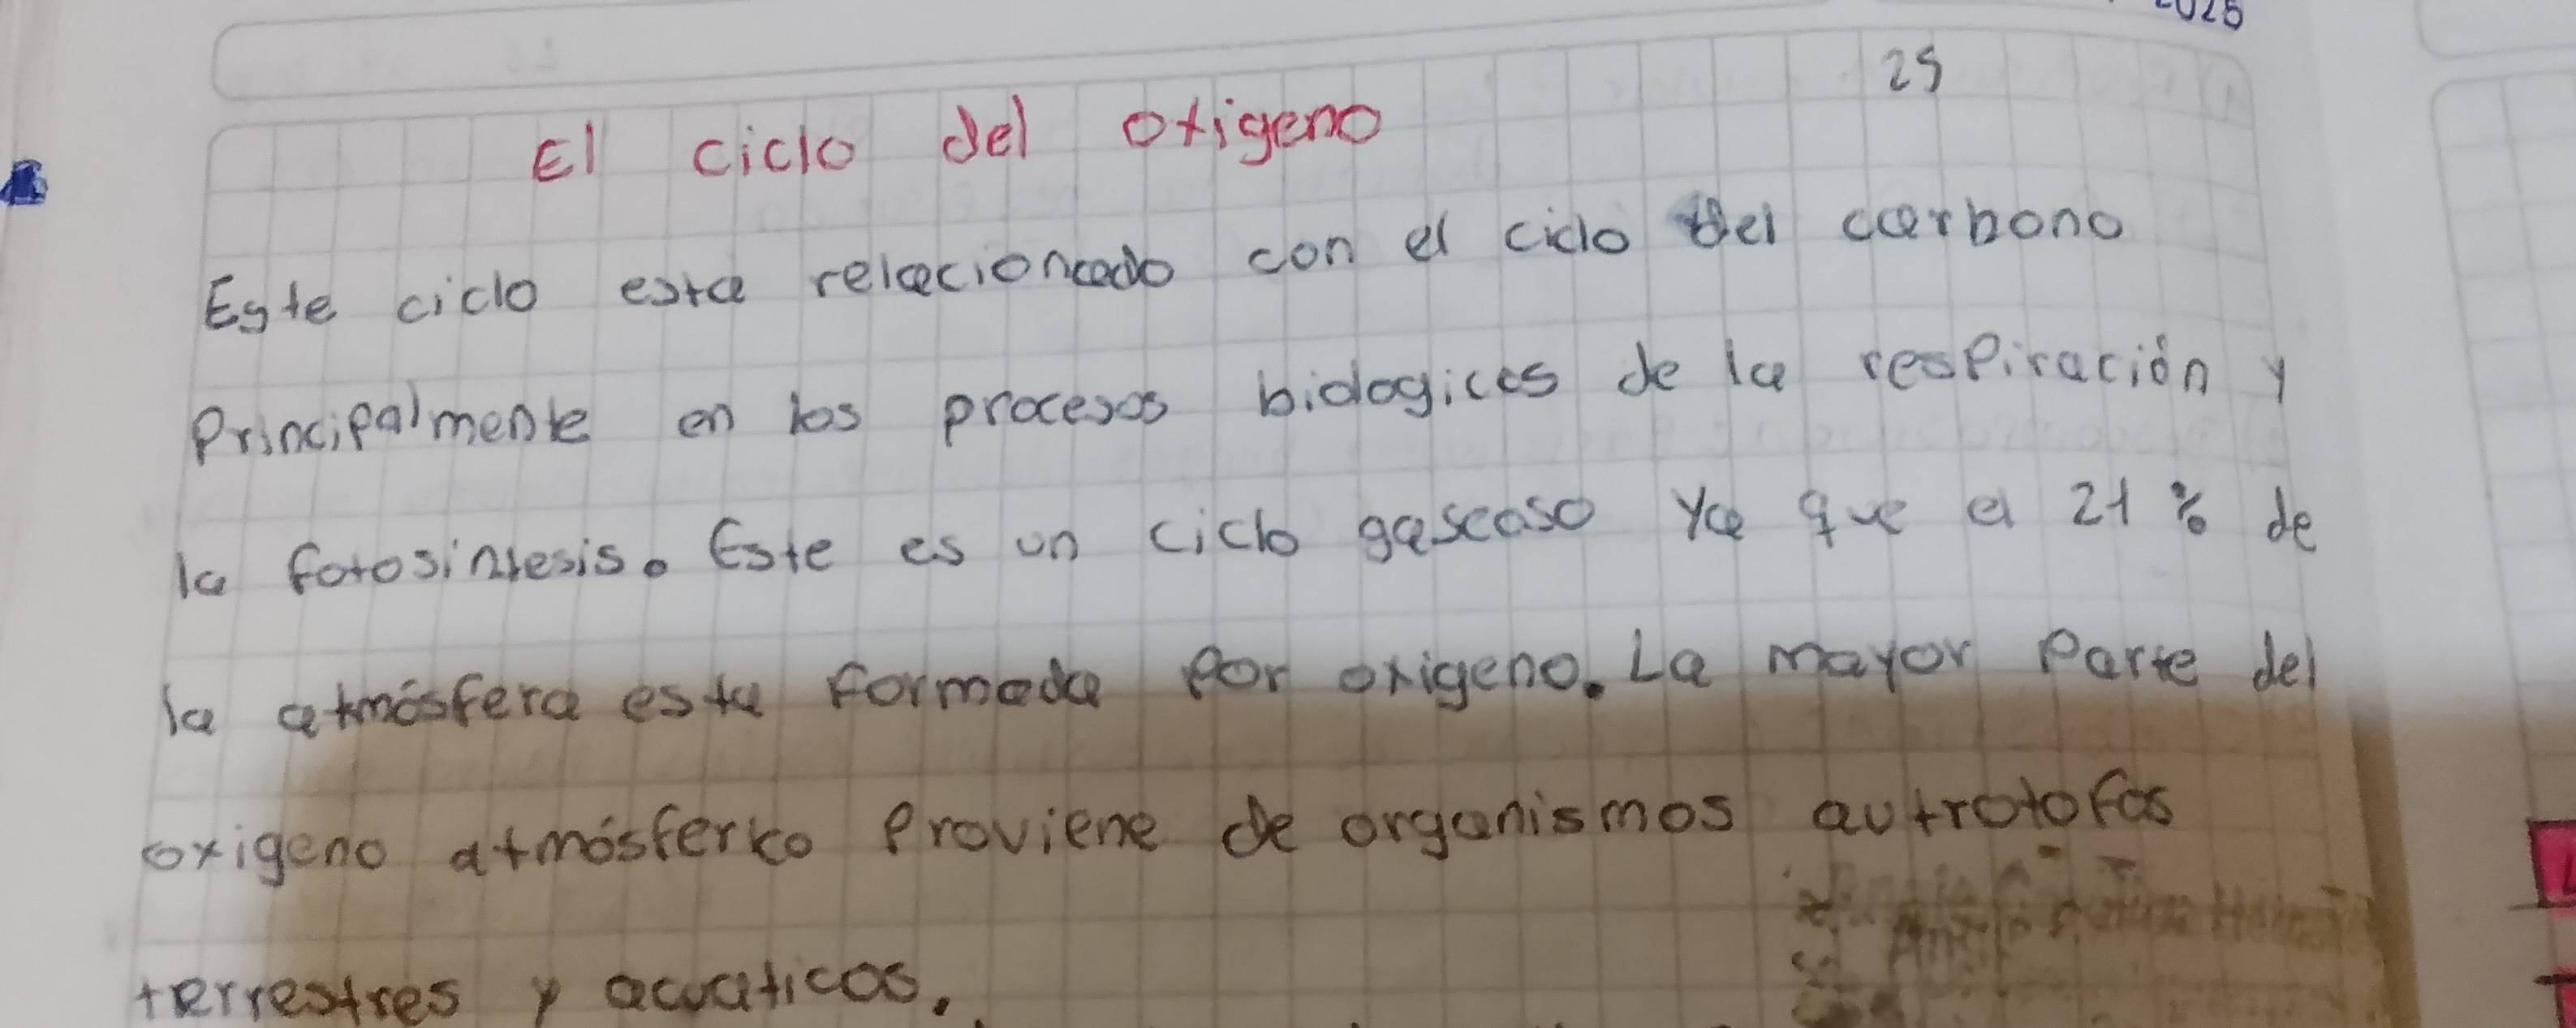 25
El ciclo del oxigeno
Este ciclo esta relacionado con el ciclo del carbono
Principalmente en los procesos biologicos de la respiración y
la fotosintesis. Este es un ciclo gaseoso ya que el 21 % de
la atmósfera esta formada por oxigeno. La mayor parte del
oxigeno atmósferico proviene de organismos autrotofos
terrestres y acuaticos.